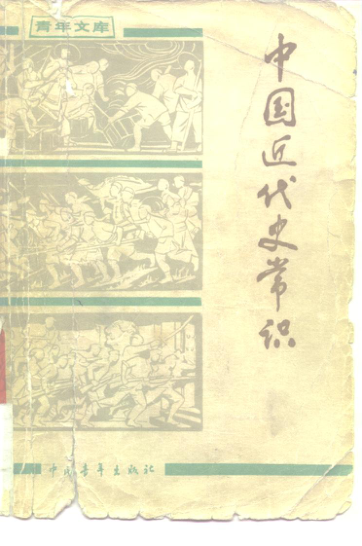 青年文库
中国近代史常识
中国青年出版社